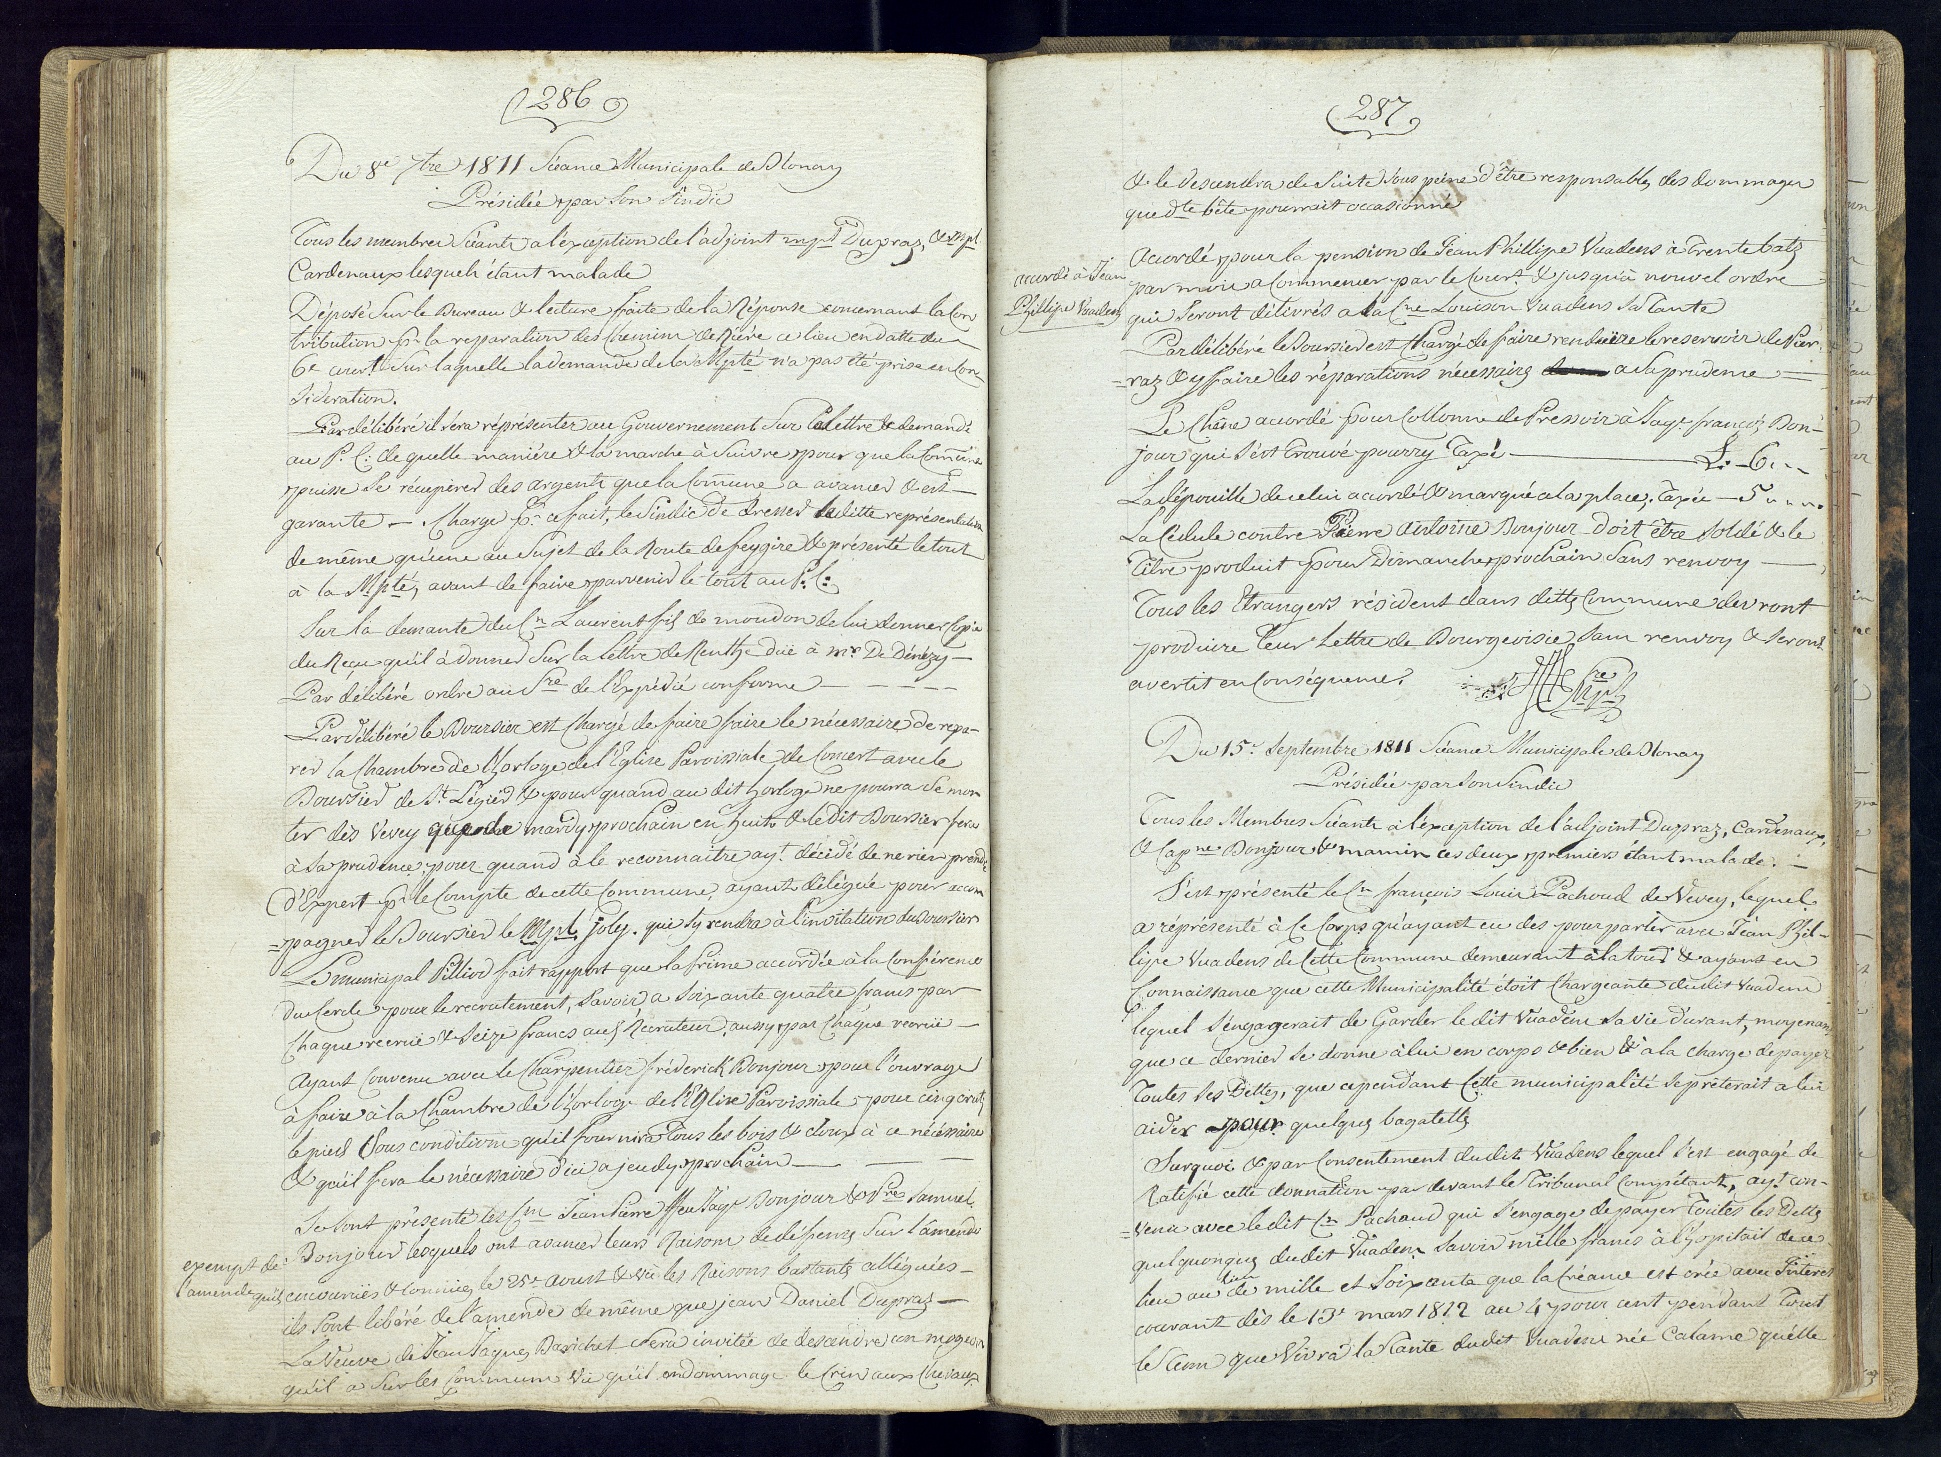 286
Du 8e 7bre 1811 Séance Municipale de Blonay
Présidée par Son Sindic
Tous les membres Séants a l'éxception de l'adjoint mpl Dupraz, & Mpl
Cardenaux lesquels étant malade
Déposé Sur le Bureau & lecture faite de la Réponse concernant la Con
tribution pr la repparation des Chemins derière ce lieu en datte du
6e court Sur laquelle la demande de la Mpté n'a pas été prise en Con
Sideration.
Par délibéré il séra réprésenter au Gouvernement Sur la lettre & demandé
au P. C: de quelle maniére & la marche à Suivre pour que la Comūne
puisse Se récupérer des argents que la Comune a avancer & est
garante — . Charge pr ce fait, le Sindic de dresser la ditte représentation
de même qu'une au Sujet de la Route de feygire & présenté le tout
à la Mpté, avant de faire parvenir le tout au P. C:
Sur la demante du Cn Laurent fils de moudon de lui donner Copie
du Reçu qu'il à donner Sur la lettre de Renthe düe à mr De Dénézy —
Par délibéré ordre au Sre de l'Expédié conforme
Par délibéré le Boursier est Chargé de faire faire le nécessaire de repa-
rer la Chambre de l'horloge de l'Eglise Paroissiale de Concert avec le
Boursier de St Légier & pour quand au dit horloge ne pourra Se mon
ter dès Vevey que de mardy prochain en huit & le dit Boursier fera
à Sa prudence pour quand à le reconnaitre ayt décidé de ne rien prendre
d'Expert pr le Compte de cette Commune, ayant délégué pour accom
=pagner le Boursier le Mpl joly. qui Sy rendra à l'invitation du Boursier
Le municipal Pilliod fait rapport que la prime accordée à la Conférence
du Cercle pour le recrutement, Savoir a Soixante quatre francs par
Chaque recruë & Seize francs aux Recruteur, aussy par Chaque recruë —
Ayant Convenu avec le Charpentier fréderick Bonjour pour l'ouvrage
à faire à la Chambre de l'horloge de l'Eglise Paroissiale pour cinq crutz
le pied Sous condition qu'il fournira Tous les bois & cloux à ce nécéssaire
& qu'il fera le nécessaire d'ici a jeudy prochain —
Se Sont présenté les Cns Jean Pierre ffeu Jaqs Bonjour & Pre Samuel
Bonjour lesquels ont avancer leurs Raisons de défense Sur l'amende
exempt de
l'amende qu'ils
encourriës & Commies le 25e aoust & vu les Raisons bastants alléguées —
ils Sont libéré de l'amende de même que jean Daniel Dupraz —
La Veuve de Jean Jaques Barichet Sera invitée de descendre un mogeon
qu'il a Sur les Commune Vu qu'il endommage le Crin aux Chevaux
287
& le descendra de Suite Sous peine d'être responsables des dommages
que dte bête pourrait occasionné
accordé à Jean
Phillipe Vuadens
Acordé pour la pension de Jean Phillipe Vuadens à Trente batz
par mois a Commencer par le Court & jusqu'à nouvel ordre
qui Seront délivrés a la Cne Louison Vuadens Sa Tante
Par délibéré le Boursier est Chargé de faire rendüire le reservoir de Pier
=raz & y faire les réparations nécessaires a Sa prudence =
Le Chêne acordé pour Collonne de Pressoir à Jaqs françois Bon-
jour qui S'est Trouvé pourry Taxé — L. 6. - -
La dépouille de celui acordé & marqué a la place, Taxée — 5 - - -
La Cédule contre Pierre Antoine Bonjour doit être Soldé & le
Titre produit pour Dimanche prochain Sans renvoy —
Tous les Etrangers résident dans dette Commune devront
produire leur Lettre de Bourgeoisie, Sans renvoy & Seront
avertit en Conséquence.
Sre Mpl
Du 15e Septembre 1811 Séance Municipale de Blonay
Présidée par Son Sindic
Tous les Membres Séants a l'éxception de l'adjoint Dupraz, Cardenaux,
& Capne Bonjour & mamin ces deux premiers étant malade. —
S'est présenté le Cn françois Louis Pachoud de Vevey, lequel
a réprésenté à Ce Corps qu'ayant eu des pourparler avec Jean Phil-
lipe Vuadens de Cette Commune demeurant à la tour & ayant eu
Connaissance que cette Municipalité étoit Chargeante dudit Vuadens
lequel S'engagerait de Garder le dit Vuadens Sa vie durant, moyenant
que ce dernier Se donne à lui en corps & bien & a la charge de payer
Toutes Ses Dettes, que cependant Cette municipalité Se prêterait a lui
aider pour quelques bagatelles
Surquoi & par Consentement dudit Vuadens lequel S'est engagé de
Ratifié cette donnation par devant le Tribunal Compétant, ayt con-
=venu avec le dit Cn Pachoud qui S'engage de payer Toutes les Dettes
quelquonques dudit Vuadens Savoir mille francs à l'hopitail de ce
lieu au lieu de mille et Soixante que la Créance est crée avec Jnterêt
courant dès le 13e mars 1812 au 4 pour cent pendant Tout
le Tem que Vivra la Tante dudit Vuadens née Calame qu'elle